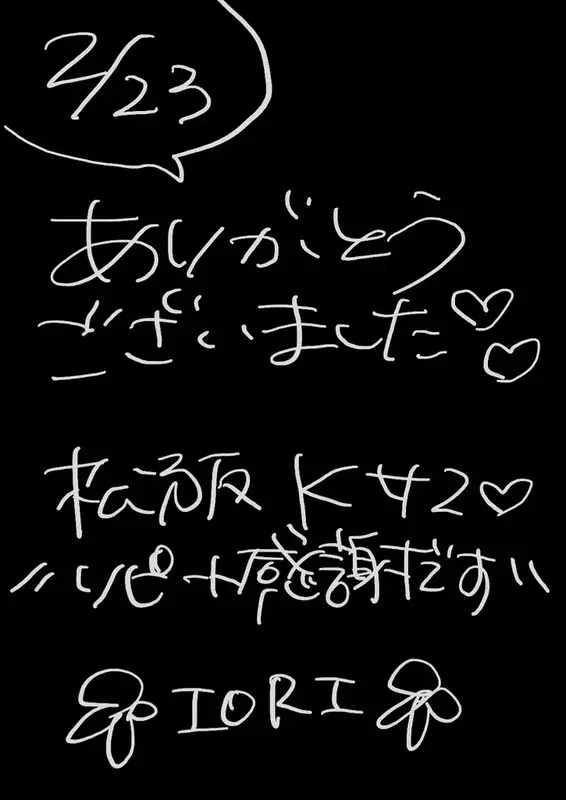 2/23
ありがとう
ございました♡♡
松阪Kサン♡
〃リピート感謝です〃
IORI